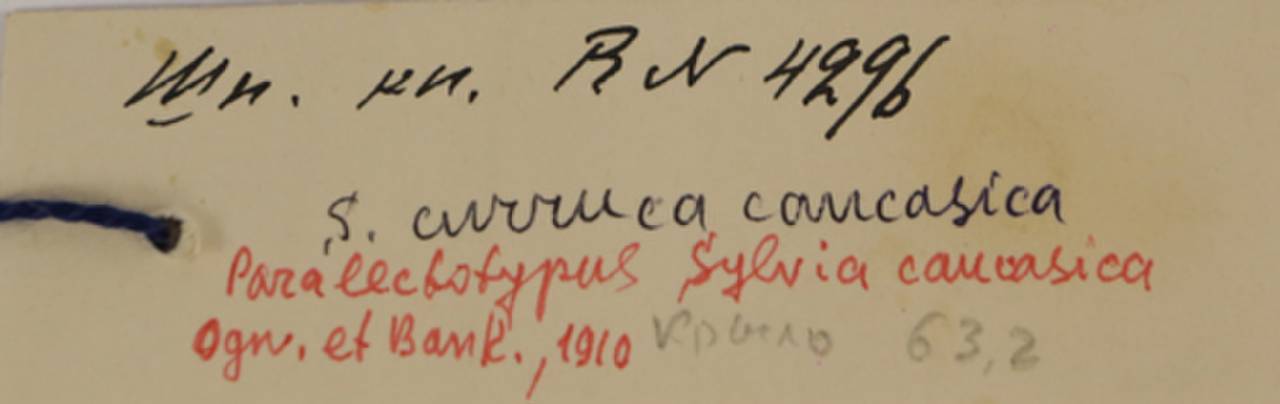 Шп. кп. R N 4296
S. curruca caucasica
Paralectotypus Sylvia caucasica
Ogn. et Bank., 1910 Крыло 63,2